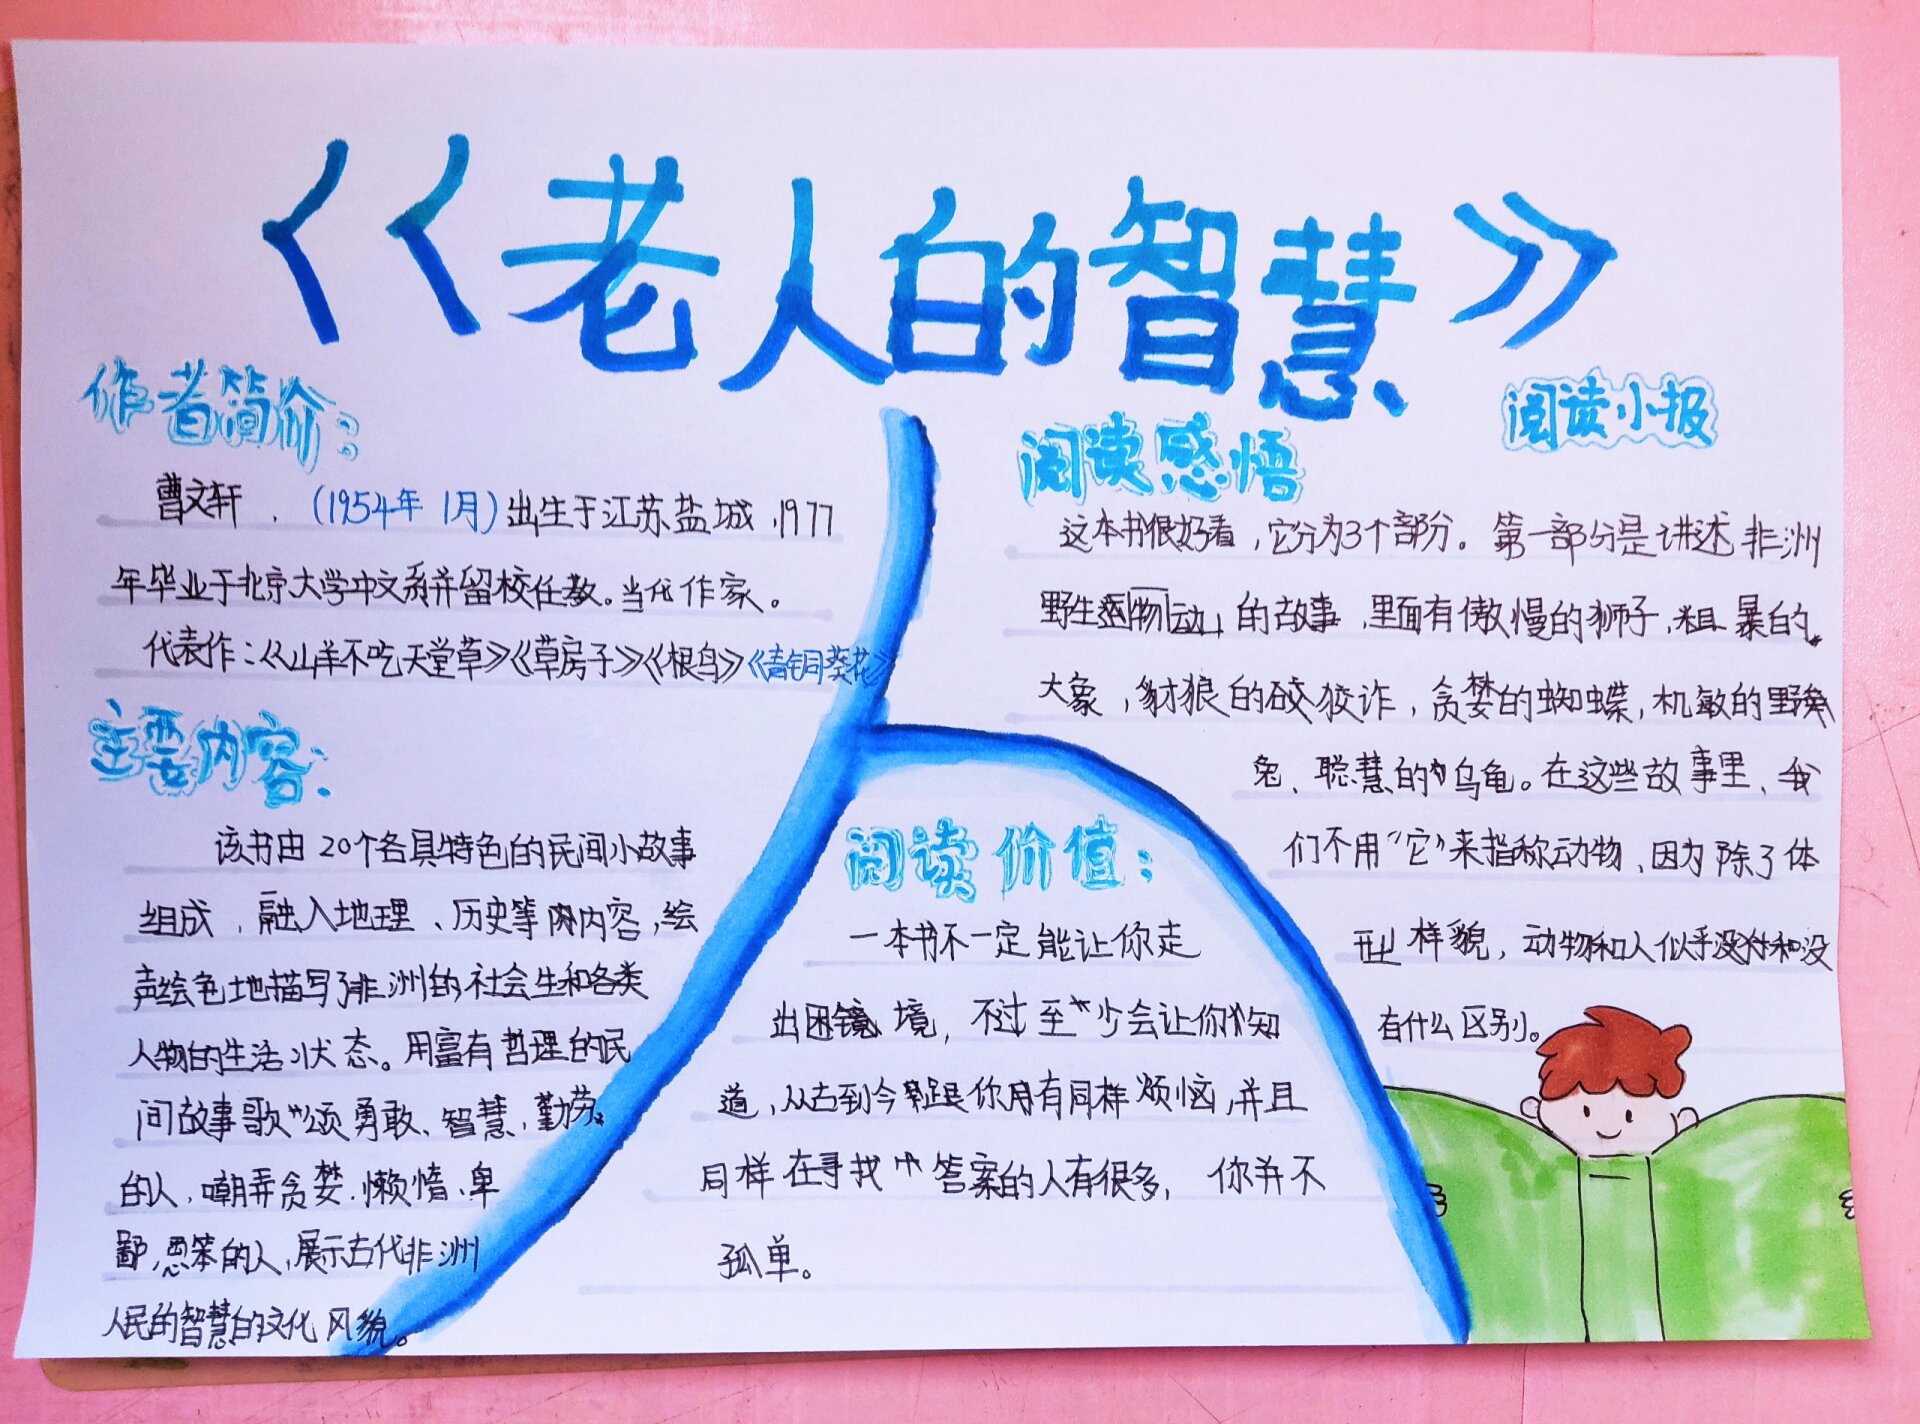 《老人的智慧》
作者简介：
曹文轩，(1954年 1月)出生于江苏盐城，1977
年毕业于北京大学中文系并留校任教。当代作家。
代表作：《山羊不吃天堂草》《草房子》《根鸟》《青铜葵花》
主要内容：
该书由20个各具特色的民间小故事
组成，融入地理、历史等内容，绘
声绘色地描写了非洲的社会生和各类
人物的生活状态。用富有哲理的民
间故事歌颂勇敢、智慧，勤劳
的人，嘲弄贪婪.懒惰、卑
鄙，愚笨的人，展示古代非洲
人民的智慧的文化风貌。
阅读价值：
一本书不一定能让你走
出困境，不过至少会让你知
道，从古到今跟你有同样烦恼，并且
同样在寻找答案的人有很多，你并不
孤单。
阅读小报
阅读感悟
这本书很好看，它分为3个部分。第一部分是讲述非洲
野生物动的故事，里面有傲慢的狮子，粗暴的
大象，豺狼的狡诈，贪婪的蜘蛛，机敏的野
兔、聪慧的乌龟。在这些故事里、我
们不用“它”来指称动物、因为除了体
型样貌，动物和人似乎没
有什么区别。